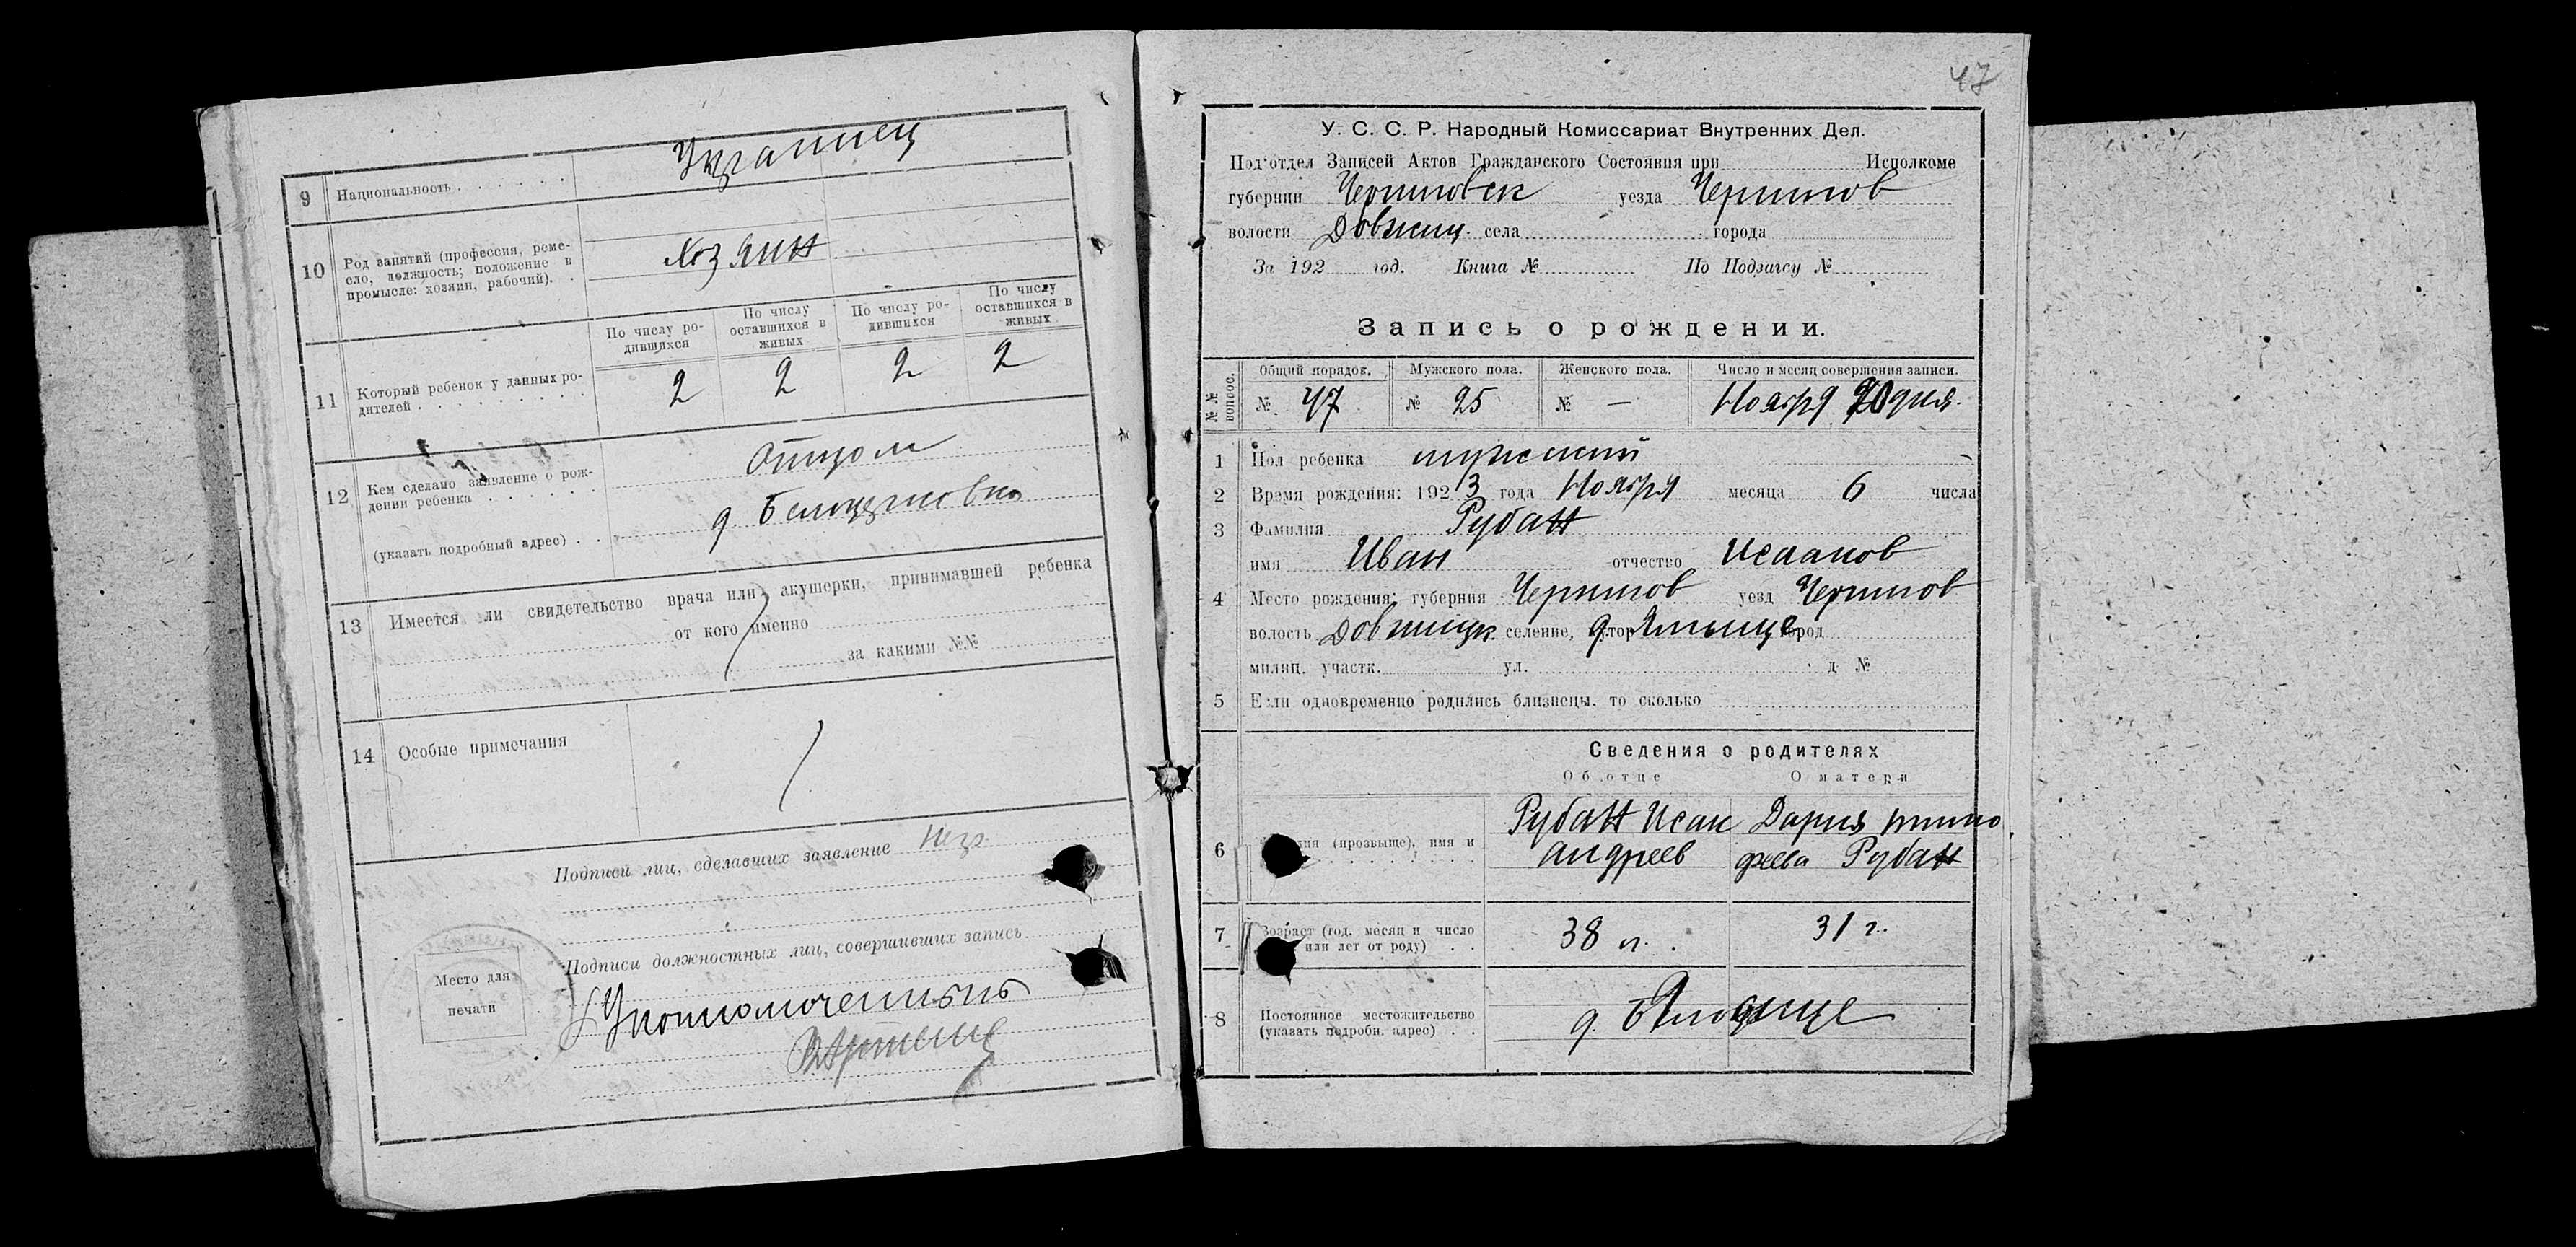 9 Национальность . . . . . . .
Украинец
10 Род занятий (профессия, реме-
сло, должность; положение в
промысле: хозяин, рабочий). .
Хозяин
По числу ро-
дившихся
По числу
оставшихся в
живых
По числу ро-
дившихся
По числу
оставшихся в
живых
11 Который ребенок у данных ро-
дителей . . . . . . . . .
2 2 2 2
12 Кем сделано заявление о рож-
дении ребенка . . . . . .
Отцом
(указать подробный адрес) . . .
д.
13 Имеется ли свидетельство врача или акушерки, принимавшей ребенка
от кого именно
за какими №№
14 Особые примечания
Подписи лиц, сделавших заявление
Подписи должностных лиц, совершивших запись
Место для
печати
47
У. С. С. Р. Народный Комиссариат Внутренних Дел.
Под'отдел Записей Актов Гражданского Состояния при Исполкоме
губернии Черниговск уезда Чернигов
волости Довжиц. села города
За 192 год. Книга № По Подзагсу №
Запись о рождении.
№ № вопрос.
Общий порядок. Мужского пола. Женского пола. Число и месяц совершения записи.
№ 47 № 25 № — Ноября 20 дня.
1 Пол ребенка мужской
2 Время рождения: 1923 года Ноября месяца 6 числа
3 Фамилия Рубан
имя Иван отчество Исааков
4 Место рождения: губерния Чернигов уезд Чернигов
волость Довжицк селение, хутор д. город
милиц. участк. ул. д №
5 Если одновременно родились близнецы, то сколько
Сведения о родителях
Об отце О матери
6 (прозвище), имя и
Рубан Исак Дария Тимо
Андреев феева Рубан
7 Возраст (год, месяц и число
или лет от роду) . .
38 л. 31 г.
8 Постоянное местожительство
(указать подробн. адрес) . .
д.